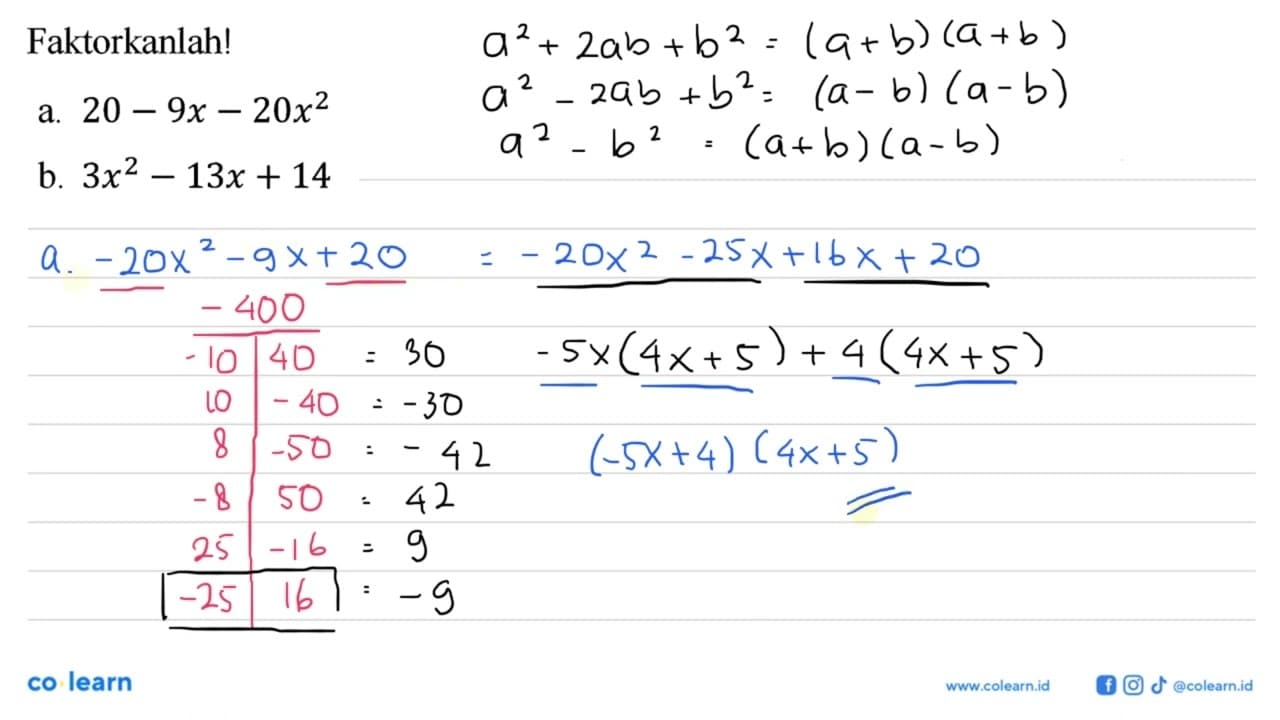 Faktorkanlah!
a. 20 − 9x − 20x²
b. 3x² − 13x + 14
a² + 2ab + b² = (a+b)(a+b)
a² − 2ab + b² = (a−b)(a−b)
a² − b² = (a+b)(a−b)
a. −20x² − 9x + 20 = −20x² − 25x + 16x + 20
−400
−10 | 40 = 30
10 | −40 = −30
8 | −50 = −42
−8 | 50 = 42
25 | −16 = 9
−25 | 16 = −9
−5x(4x+5) + 4(4x+5)
(−5x+4)(4x+5)
co learn
www.colearn.id
@colearn.id